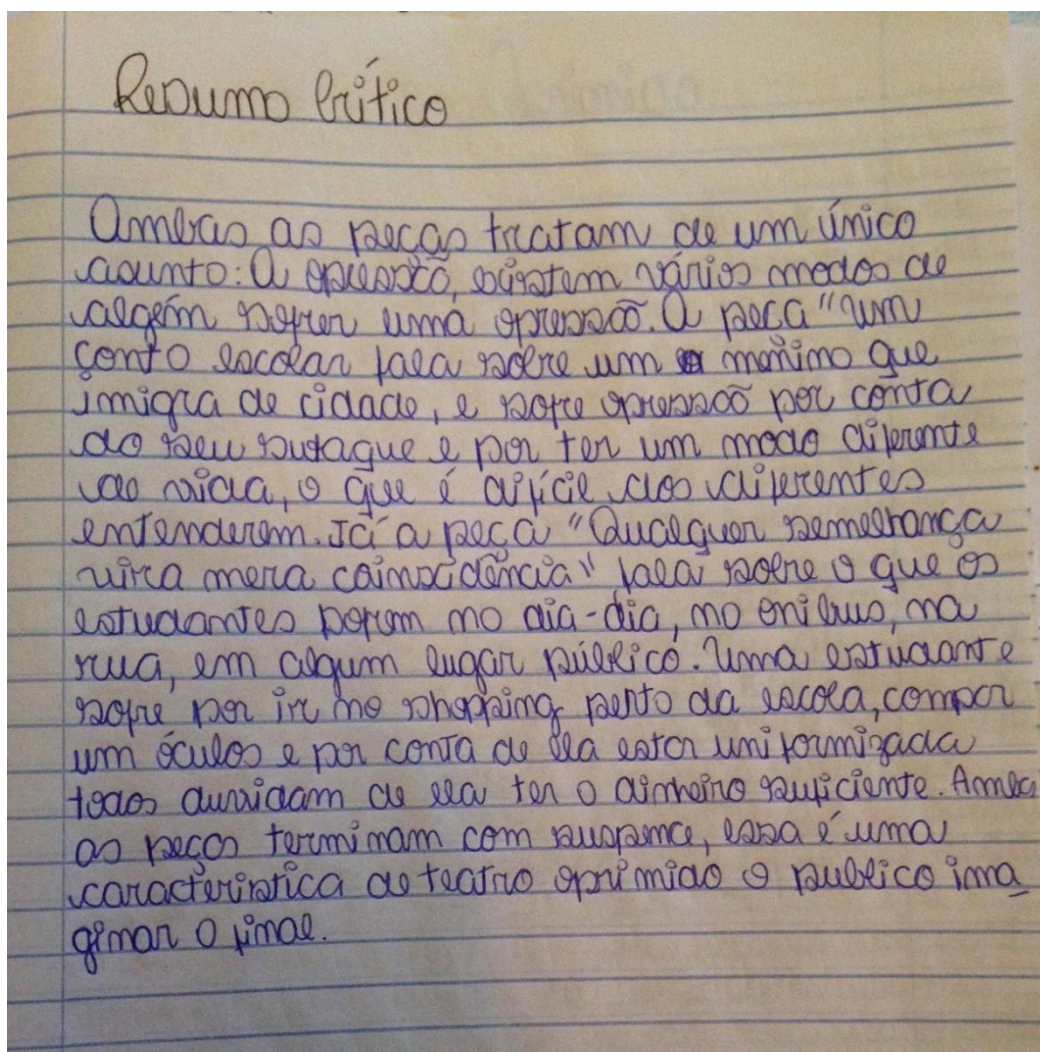 Resumo Crítico
Ambas as peças tratam de um único
asunto: A opressõ, existem vários modos de
algém sofrer uma opressão. A peça "um
conto escolar fala sobre um menino que
imigra de cidade, e sofre opressão por conta
do seu sutaque e por ter um modo diferente
de vida, o que é difícil dos diferentes
entenderem. Já a peça "Qualquer semelhança
vira mera coinscidência" fala sobre o que os
estudantes no dia-dia, no onibus, na
rua, em algum lugar público. Uma estudante
sofre por ir no shopping perto da escola, compar
um óculos e por conta de ela estar uniformizada
todos duvidam de ela ter o dinheiro suficiente. Ambas
as peças terminam com suspence, essa é uma
caracteristica do teatro oprimido o publico ima
ginar o final.